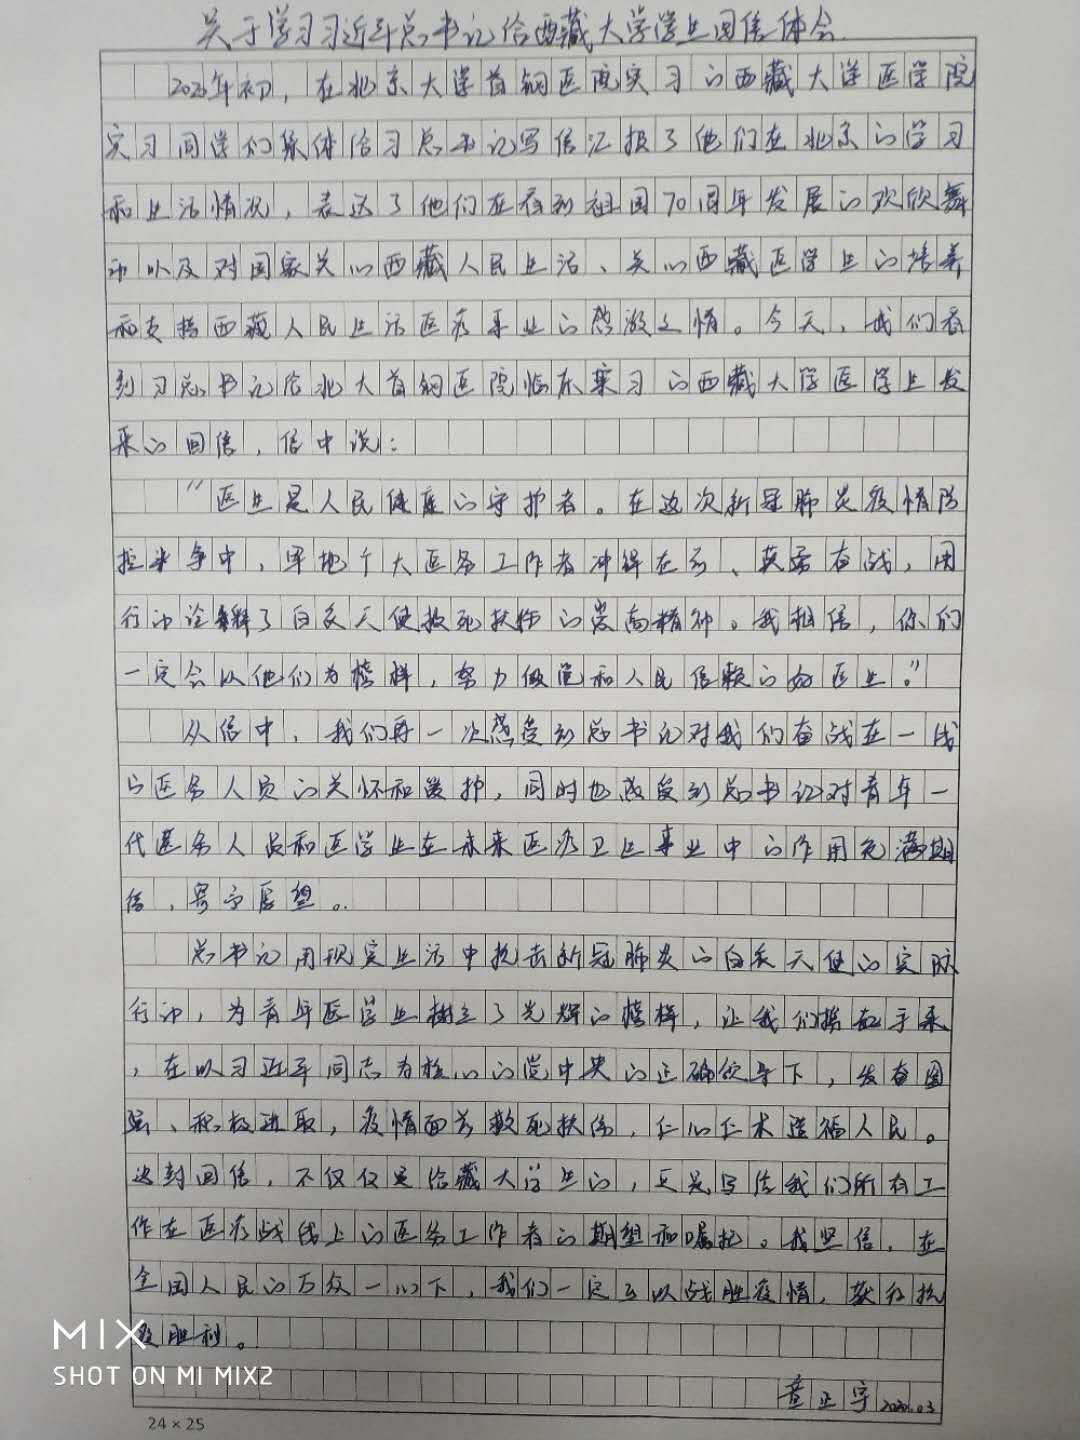 关于学习习近平总书记给西藏大学学生回信体会
2020年初，在北京大学首钢医院实习的西藏大学医学院
实习同学们集体给习总书记写信汇报了他们在北京的学习
和生活情况，表达了他们在看到祖国70周年发展的欢欣舞
动以及对国家关心西藏人民生活、关心西藏医学生的培养
和支援西藏人民生活医疗事业的感激之情。今天，我们看
到习总书记给北大首钢医院临床实习的西藏大学医学生发
来的回信，信中说：
“医生是人民健康的守护者。在这次新冠肺炎疫情防
控斗争中，军地广大医务工作者冲锋在前、英勇奋战，用
行动诠释了白衣天使救死扶伤的崇高精神。我相信，你们
一定会以他们为榜样，努力做党和人民信赖的好医生。”
从信中，我们再一次感受到总书记对我们奋战在一线
的医务人员的关怀和爱护，同时也感受到总书记对青年一
代医务人员和医学生在未来医疗卫生事业中的作用充满期
待，寄予厚望。
总书记用现实生活中抗击新冠肺炎的白衣天使的实际
行动，为青年医学生树立了光辉的榜样，让我们携起手来
，在以习近平同志为核心的党中央的正确领导下，发奋图
强、积极进取，疫情面前救死扶伤，仁心仁术造福人民。
这封回信，不仅仅是给藏大学生的，更是写给我们所有工
作在医疗战线上的医务工作者的期望和嘱托。我坚信，在
全国人民的万众一心下，我们一定可以战胜疫情，获得抗
疫胜利。
章正宇 2020.03
MIX
SHOT ON MI MIX2
24×25